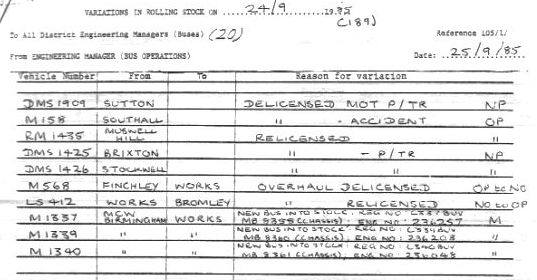 VARIATIONS IN ROLLING STOCK ON 24/9 1985
(189)
To All District Engineering Managers (Buses) (20) Reference 105/1/
From ENGINEERING MANAGER (BUS OPERATIONS) Date: 25/9/85
Vehicle Number From To Reason for variation
DMS 1909 SUTTON DELICENSED MOT P/TR NP
M 158 SOUTHALL " - ACCIDENT OP
RM 1435 MUSWELL HILL RELICENSED "
DMS 1425 BRIXTON " - P/TR NP
DMS 1426 STOCKWELL " " "
M 568 FINCHLEY WORKS OVERHAUL DELICENSED OP to NO
LS 412 WORKS BROMLEY " RELICENSED NO to OP
M 1337 MCW BIRMINGHAM WORKS NEW BUS INTO STOCK: REG NO: C337BUV
MB 8358 (CHASSIS), ENG NO: 236257 M
M 1339 " " NEW BUS INTO STOCK: REG NO: C339BUV
MB 8360 (CHASSIS), ENG NO: 236203 "
M 1340 " " NEW BUS INTO STOCK: REG NO: C340BUV
MB 8361 (CHASSIS), ENG NO: 236048 "